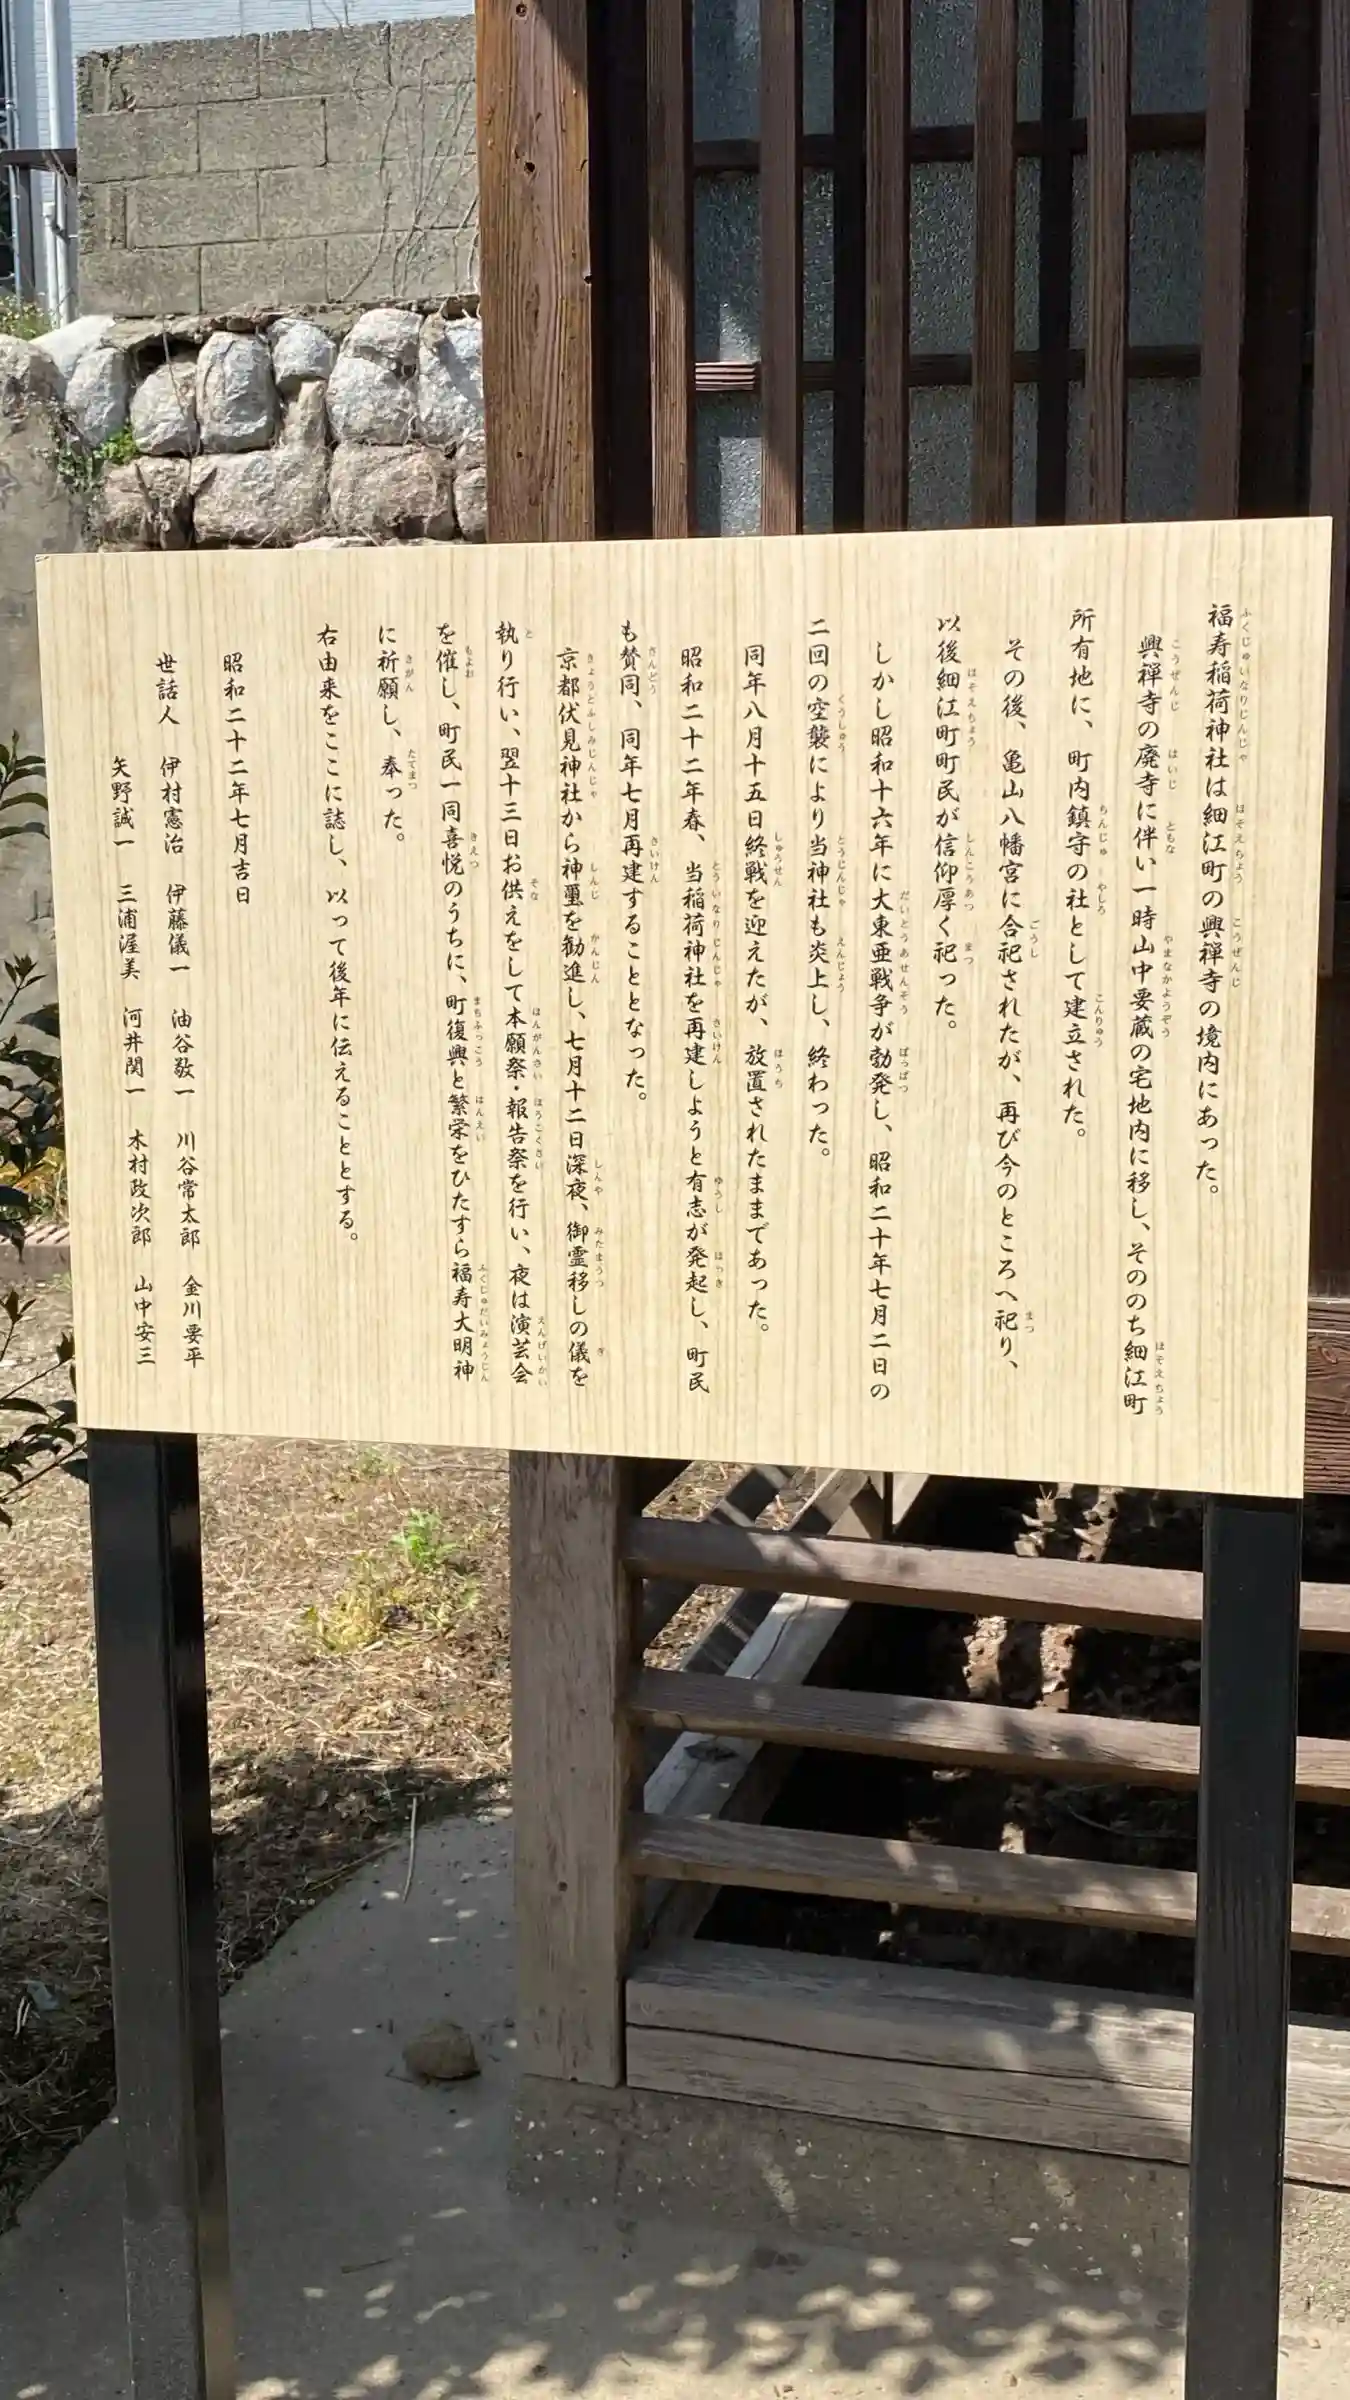 福寿稲荷神社は細江町の興禅寺の境内にあった。
興禅寺の廃寺に伴い一時山中要蔵の宅地内に移し、そののち細江町
所有地に、町内鎮守の社として建立された。
その後、亀山八幡宮に合祀されたが、再び今のところへ祀り、
以後細江町町民が信仰厚く祀った。
しかし昭和十六年に大東亜戦争が勃発し、昭和二十年七月二日の
二回の空襲により当神社も炎上し、終わった。
同年八月十五日終戦を迎えたが、放置されたままであった。
昭和二十二年春、当稲荷神社を再建しようと有志が発起し、町民
も賛同、同年七月再建することとなった。
京都伏見神社から神璽を勧進し、七月十二日深夜、御霊移しの儀を
執り行い、翌十三日お供えをして本願祭・報告祭を行い、夜は演芸会
を催し、町民一同喜悦のうちに、町復興と繁栄をひたすら福寿大明神
に祈願し、奉った。
右由来をここに誌し、以って後年に伝えることとする。
昭和二十二年七月吉日
世話人　伊村憲治　伊藤儀一　油谷敬一　川谷常太郎　金川要平
矢野誠一　三浦渥美　河井関一　木村政次郎　山中安三